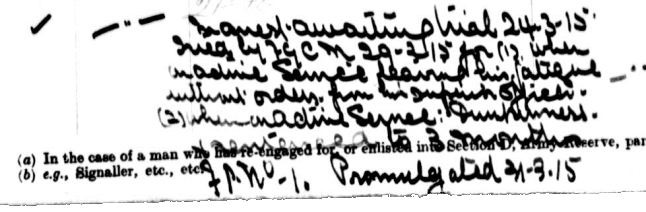 In arrest awaiting trial 24-3-15.
Tried by F.G.C.M. 29-3-15 for (1) when
on active Service leaving his fatigue
without orders from his superior officer.
(2) when on active Service: Drunkenness.
Sentenced to 3 months
(a) In the case of a man who has re-engaged for, or enlisted into Section D, Army Reserve, par
(b) e.g., Signaller, etc., etc.
F.P. No-1. Promulgated 31-3-15